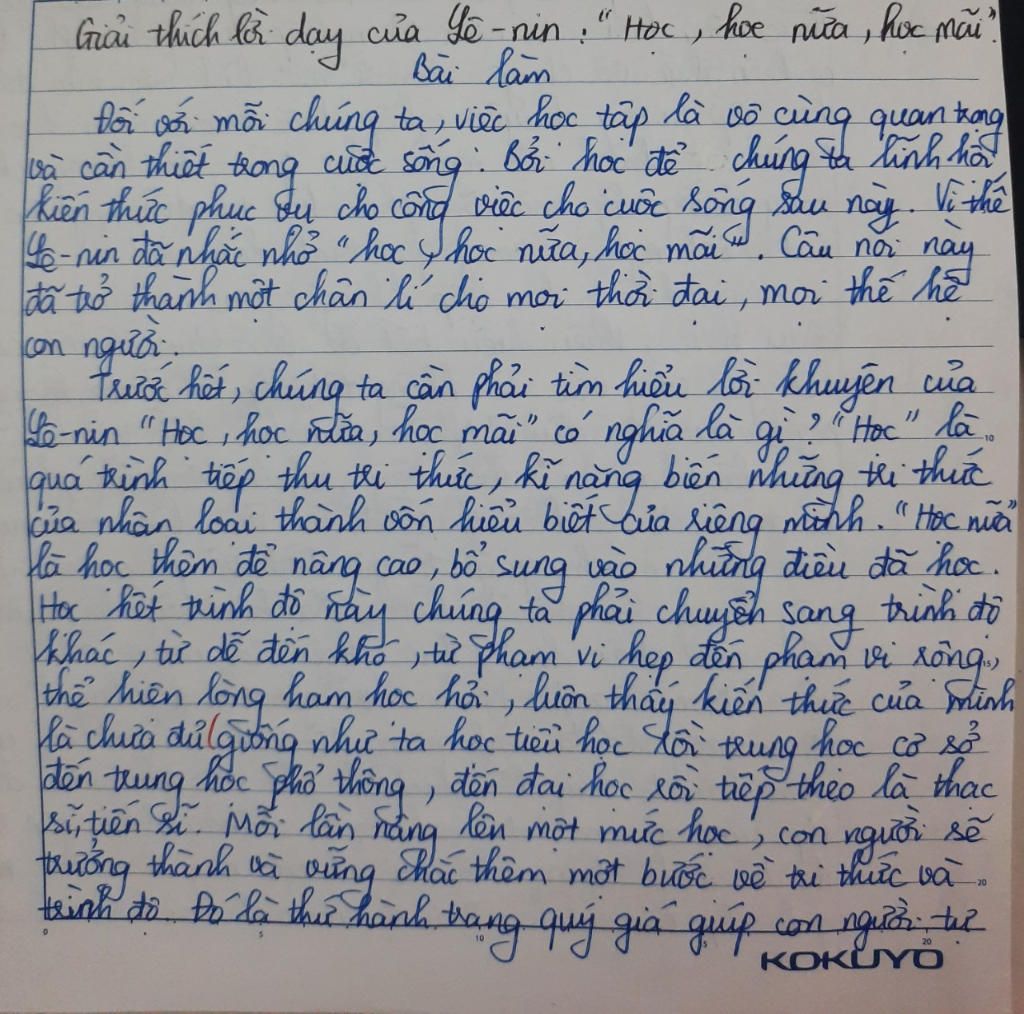 Giải thích lời dạy của Lê-nin: "Học, học nữa, học mãi".
Bài làm
Đối với mỗi chúng ta, việc học tập là vô cùng quan trọng
và cần thiết trong cuộc sống. Bởi học để chúng ta lĩnh hội
kiến thức phục vụ cho công việc cho cuộc sống sau này. Vì thế
Lê-nin đã nhắc nhở "học, học nữa, học mãi". Câu nói này
đã trở thành một chân lí cho mọi thời đại, mọi thế hệ
con người.
Trước hết, chúng ta cần phải tìm hiểu lời khuyên của
Lê-nin "Học, học nữa, học mãi" có nghĩa là gì? "Học" là
quá trình tiếp thu tri thức, kĩ năng biến những tri thức
của nhân loại thành vốn hiểu biết của riêng mình. "Học nữa"
là học thêm để nâng cao, bổ sung vào những điều đã học.
Học hết trình độ này chúng ta phải chuyển sang trình độ
khác, từ dễ đến khó, từ phạm vi hẹp đến phạm vi rộng,
thể hiện lòng ham học hỏi, luôn thấy kiến thức của mình
là chưa đủ (giống như ta học tiểu học rồi trung học cơ sở
đến trung học phổ thông, đến đại học rồi tiếp theo là thạc
sĩ, tiến sĩ. Mỗi lần nâng lên một mức học, con người sẽ
trưởng thành và vững chắc thêm một bước về tri thức và
trình độ. Đó là thứ hành trang quý giá giúp con người tự
KOKUYO